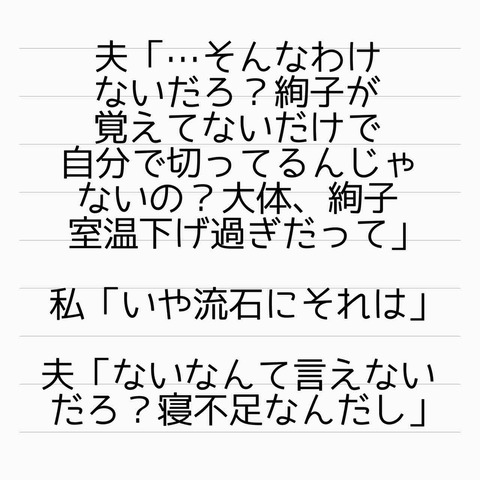 夫「…そんなわけ
ないだろ？絢子が
覚えてないだけで
自分で切ってるんじゃ
ないの？大体、絢子
室温下げ過ぎだって」
私「いや流石にそれは」
夫「ないなんて言えない
だろ？寝不足なんだし」